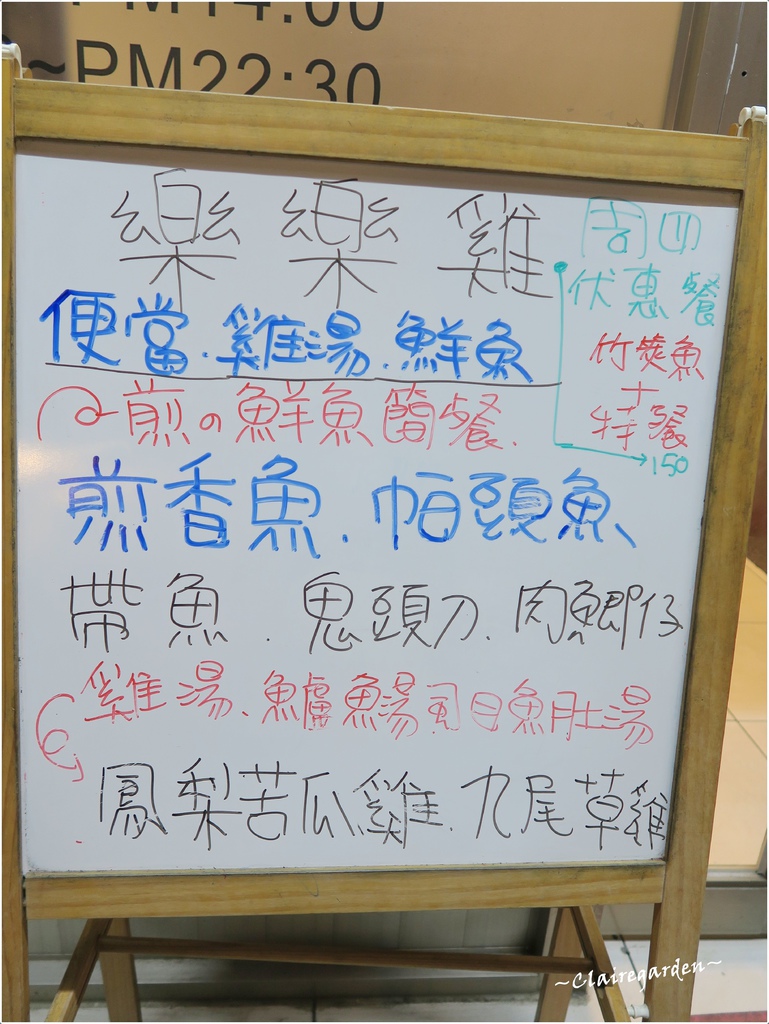 PM14:00
~PM22:30
樂樂雞
周四
伏惠餐
便當.雞湯.鮮魚
竹筴魚
+
特餐
150
煎の鮮魚簡餐.
煎香魚.帕頭魚
帶魚.鬼頭刀.肉鯽仔
雞湯.鱸魚湯虱目魚肚湯
鳳梨苦瓜雞.九尾草雞
~Clairegarden~